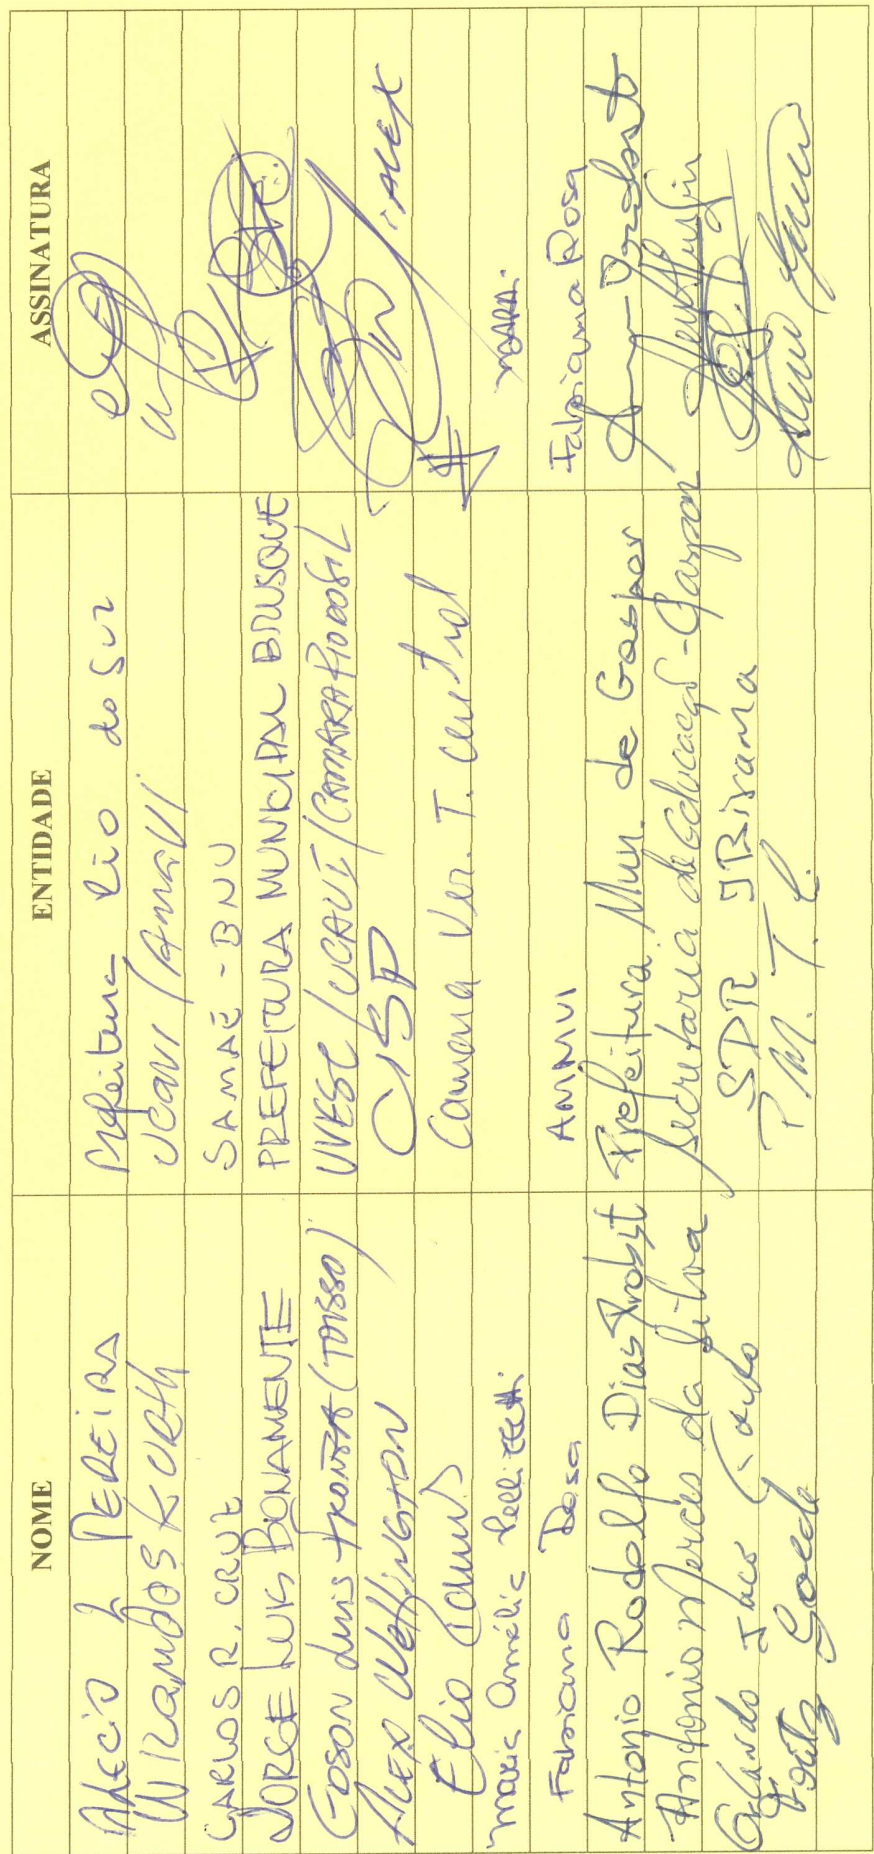 NOME ENTIDADE ASSINATURA
ALECIO L PEREIRA Prefeitura Rio do Sul
WIRANDOS KURTH UCAVI/AMAVI
CARLOS R. CRUZ SAMAE - BNU
JORGE LUIS BONAMENTE PREFEITURA MUNICIPAL BRUSQUE
EDSON Luis FRONZA (TOISSO) UVESC/UCAVI/CAMARA RIO DO SUL
ALEX WELLINGTON CISP ALEX
Elio Camara Ver. T. Central
Maria Amélia Pellizzetti MARA.
Fabiana Rosa AMMVI Fabiana Rosa
Antonio Rodolfo Dias Probst Prefeitura Mun. de Gaspar
Antonio Mercês da Silva Secretaria de Educação - Gaspar
Orlando SDR IBirama
P.M.T.C.